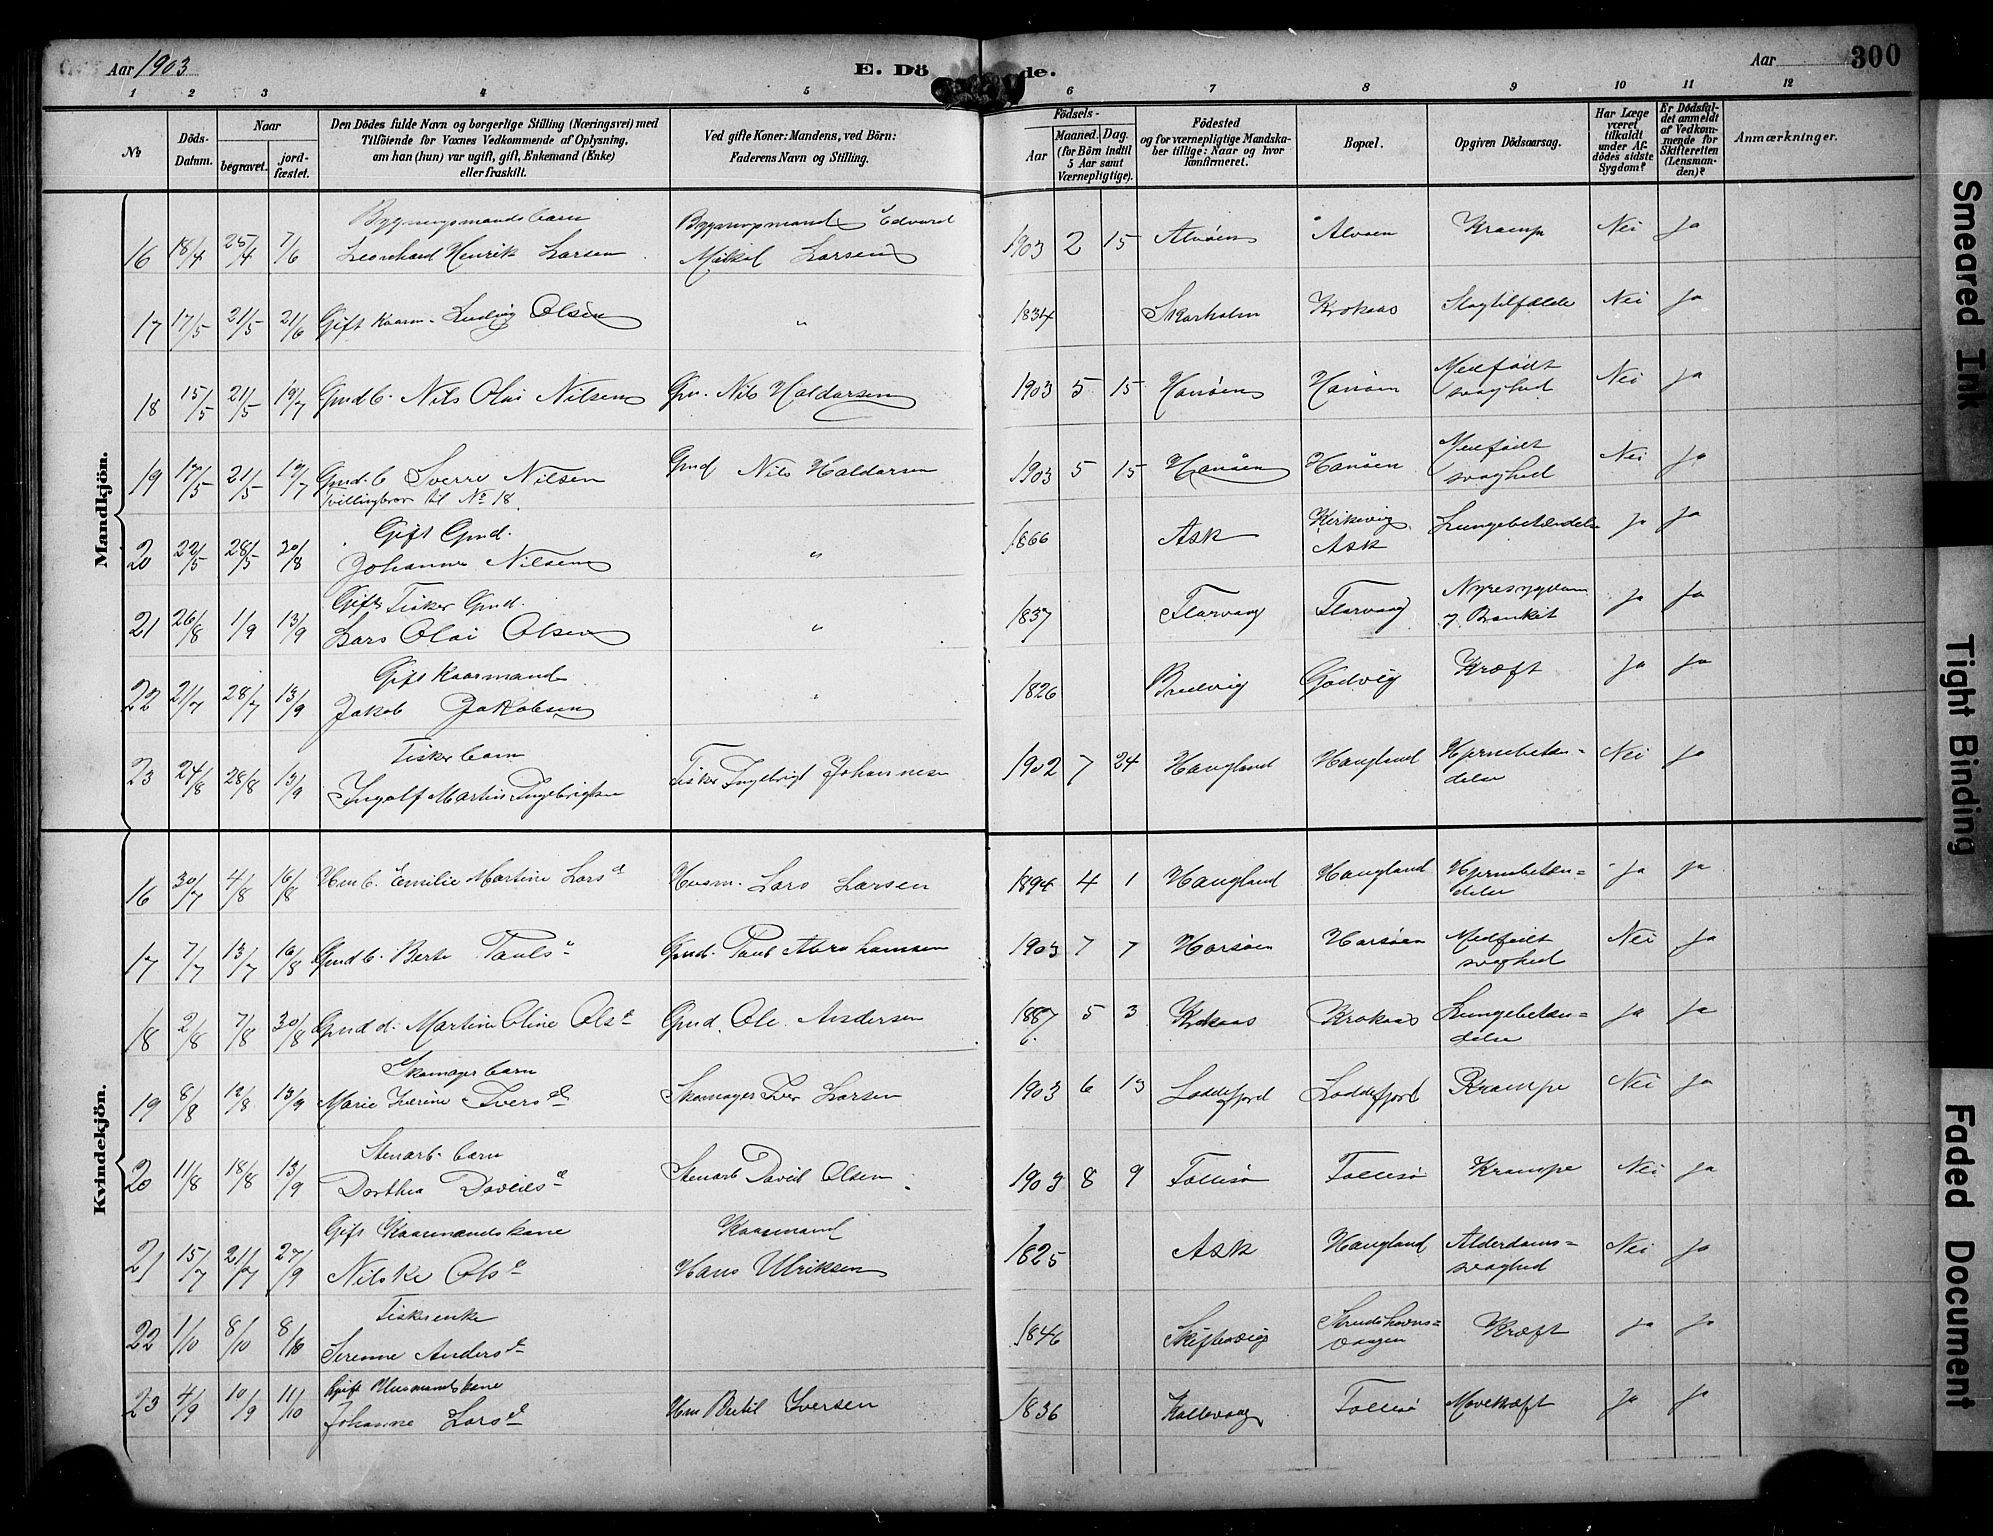 Aar 1903
E. Dö
de.
Aar 300
1 2 3 4 5 6 7 8 9 10 11 12
No
Döds-
Datum.
Naar
begravet.
jord-
fæstet.
Den Dödes fulde Navn og borgerlige Stilling (Næringsvei) med
Tilföiende for Voxnes Vedkommende af Oplysning,
om han (hun) var ugift, gift, Enkemand (Enke)
eller fraskilt.
Ved gifte Koner: Mandens, ved Börn:
Faderens Navn og Stilling.
Födsels-
Aar
Maaned. Dag.
(for Börn indtil
5 Aar samt
Værnepligtige).
Födested
og for værnepligtige Mandska-
ber tillige: Naar og hvor
konfirmeret.
Bopæl.
Opgiven Dödsaarsag.
Har Læge
været
tilkaldt
under Af-
dödes sidste
Sygdom?
Er Dödsfal-
det anmeldt
af Vedkom-
mende for
Skifteretten
(Lensman-
den)?
Anmærkninger.
Mandkjön.
Bygningsmandsbarn Bygningsmand Edvard
16 18/4 25/4 7/6 Leonhard Henrik Larsen Mikal Larsen 1903 2 15 Alvøen Alvøen Krampe Nei Ja
17 17/5 21/5 21/6 Gift Kaarm. Ludvig Olsen " 1834 Skarholm Krokaas Slagtilfælde Nei Ja
18 15/5 21/5 19/7 Gmd b. Nils Olai Nilsen Gm. Nils Haldorsen 1903 5 15 Hanøen Hanøen Medfødt svaghed Nei Ja
19 17/5 21/5 19/7 Gmd. b Sverre Nilsen Gmd Nils Haldorsen 1903 5 15 Hanøen Hanøen Medfødt svaghed Nei Ja
Tvillingbror til No 18.
Gift Gmd.
20 22/5 28/5 30/8 Johannes Nilsen " 1866 Ask Kirkevig Ask Lungebetændelse Ja Ja
Gift Fisker Gmd.
21 26/8 1/9 13/9 Lars Olai Olsen " 1837 Florvaag Florvaag Nyresygdom Ja Ja
Gift Kaarmand
22 21/7 28/7 13/9 Jakob Jakobsen " 1826 Bredvig Godvig Kræft Ja Ja
Fisker barn
23 24/8 28/8 13/9 Ingolf Martin Ingebrigtsen Fisker Ingebrigt Johannesen 1902 7 24 Haugland Haugland Hjernebetæn=
delse Nei Ja
Kvindekjön.
16 30/7 4/8 16/8 Hm b. Emilie Martine Larsd Husm. Lars Larsen 1894 4 1 Haugland Haugland Hjernebetæn=
delse Ja Ja
17 7/7 13/7 16/8 Gmd b. Berte Pauls" Gmd. Paul Abrahamsen 1903 7 7 Horsøen Horsøen Medfødt svaghed Nei Ja
18 2/8 7/8 30/8 Gmd d. Martine Oline Olsd Gmd. Ole Andersen 1887 5 3 Krokaas Krokaas Lungebetæn=
delse Ja Ja
Skomager barn
19 8/8 12/8 13/9 Marie Iverine Iversd Skomager Iver Larsen 1903 6 13 Loddefjord Loddefjord Krampe Nei Ja
Stenarb. barn
20 11/8 18/8 13/9 Dorthea Davidsd Stenarb David Olsen 1903 8 9 Follesø Follesø Krampe Nei Ja
Gift Kaarmandskone Kaarmand
21 15/7 21/7 27/9 Nilske Olsd Hans Ulriksen 1825 Ask Haugland Alderdoms=
svaghed Nei Ja
Fiskerenke
22 1/10 8/10 8/10 Serenne Andersd 1846 Skiftesvig Strudshavns=
vaagen Kræft Ja Ja
Gift Husmandskone
23 4/9 10/9 11/10 Johanne Larsd Hm Bertil Iversen 1836 Kollevaag Follesø Mavekræft Ja Ja
Smeared Ink
Tight Binding
Faded Document